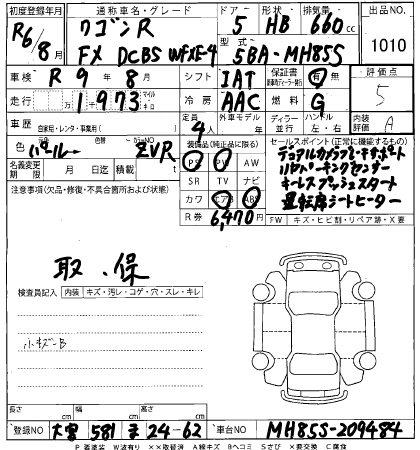 初度登録年月 通称車名・グレード ドア 形状 排気量 出品NO.
R6/8月 ワゴンR 5 HB 660cc 1010
FX DCBS WFXE-4 型式 5BA-MH85S
車検 R 9年 8月 シフト IAT 保証書 有 無 評価点
走行 1973 マイル キロ 冷房 AAC 燃料 G 5
車歴 自家用・レンタ・事業用( ) 定員 4人 外車モデル 年 ディーラー 並行 ハンドル 左・右 内装評価 A
色 パール 色替 カラーNO ZVR 装備品(純正品に限る) セールスポイント(正常に機能するもの)
名義変更期限 月 日 積載 t PS PW AW デュアルカメラブレーキサポート
注意事項(欠品・修復・不具合箇所および状態) SR TV ナビ リヤパーキングセンサー
カワ エアB ABS キーレスプッシュスタート
R券 6,470円 運転席シートヒーター
FW キズ・ヒビ割・リペア跡・X要
取・保
検査員記入 内装 キズ・汚レ・コゲ・穴・スレ・キレ
小キズ-B
長さ cm 幅 cm 高さ cm
登録NO 大宮 581 ま 24-62 車台NO MH85S-209484
P 要塗装 W波有り ××取替済 A線キズ Bヘコミ Sさび ×要交換 C腐食